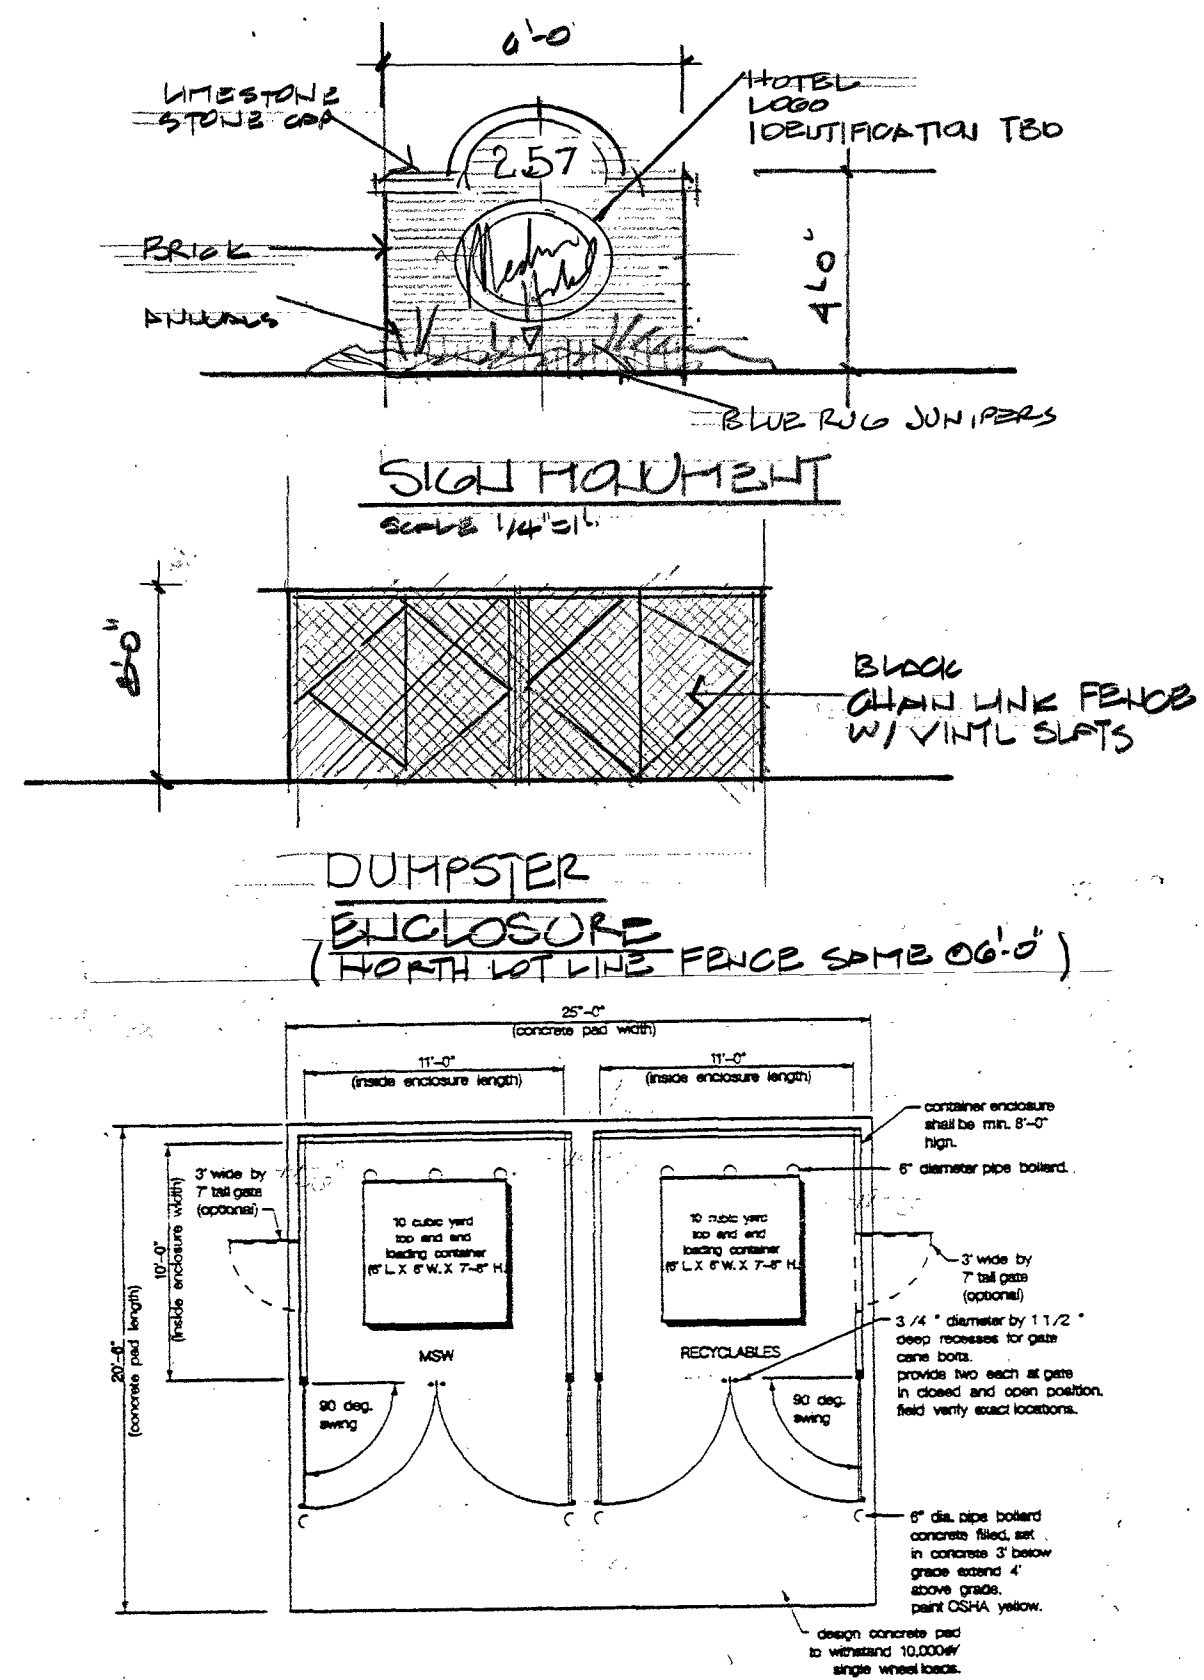 6'-0"
LIMESTONE
STONE CAP
HOTEL
LOGO
IDENTIFICATION TBD
257
BRICK
4'-0"
ANNUALS
BLUE RUG JUNIPERS
SIGN MONUMENT
SCALE 1/4"=1'
8'-0"
BLACK
CHAIN LINK FENCE
W/ VINYL SLATS
DUMPSTER
ENCLOSURE
(NORTH LOT LINE FENCE SAME @6'-0")
25'-0"
(concrete pad width)
11'-0"
(inside enclosure length)
11'-0"
(inside enclosure length)
container enclosure
shall be min. 8'-0"
high.
6" diameter pipe bollard.
3' wide by
7' tall gate
(optional)
10'-0"
(inside enclosure width)
20'-6"
(concrete pad length)
10 cubic yard
top and end
loading container
(6' L. X 6' W. X 7'-8" H.
10 cubic yard
top and end
loading container
(6' L. X 6' W. X 7'-8" H.
3' wide by
7' tall gate
(optional)
MSW
RECYCLABLES
3/4 " diameter by 1 1/2 "
deep recesses for gate
cane bolts.
provide two each at gate
in closed and open position.
field verify exact locations.
90 deg.
swing
90 deg.
swing
6" dia. pipe bollard
concrete filled, set
in concrete 3' below
grade extend 4'
above grade.
paint OSHA yellow.
design concrete pad
to withstand 10,000#
single wheel loads.